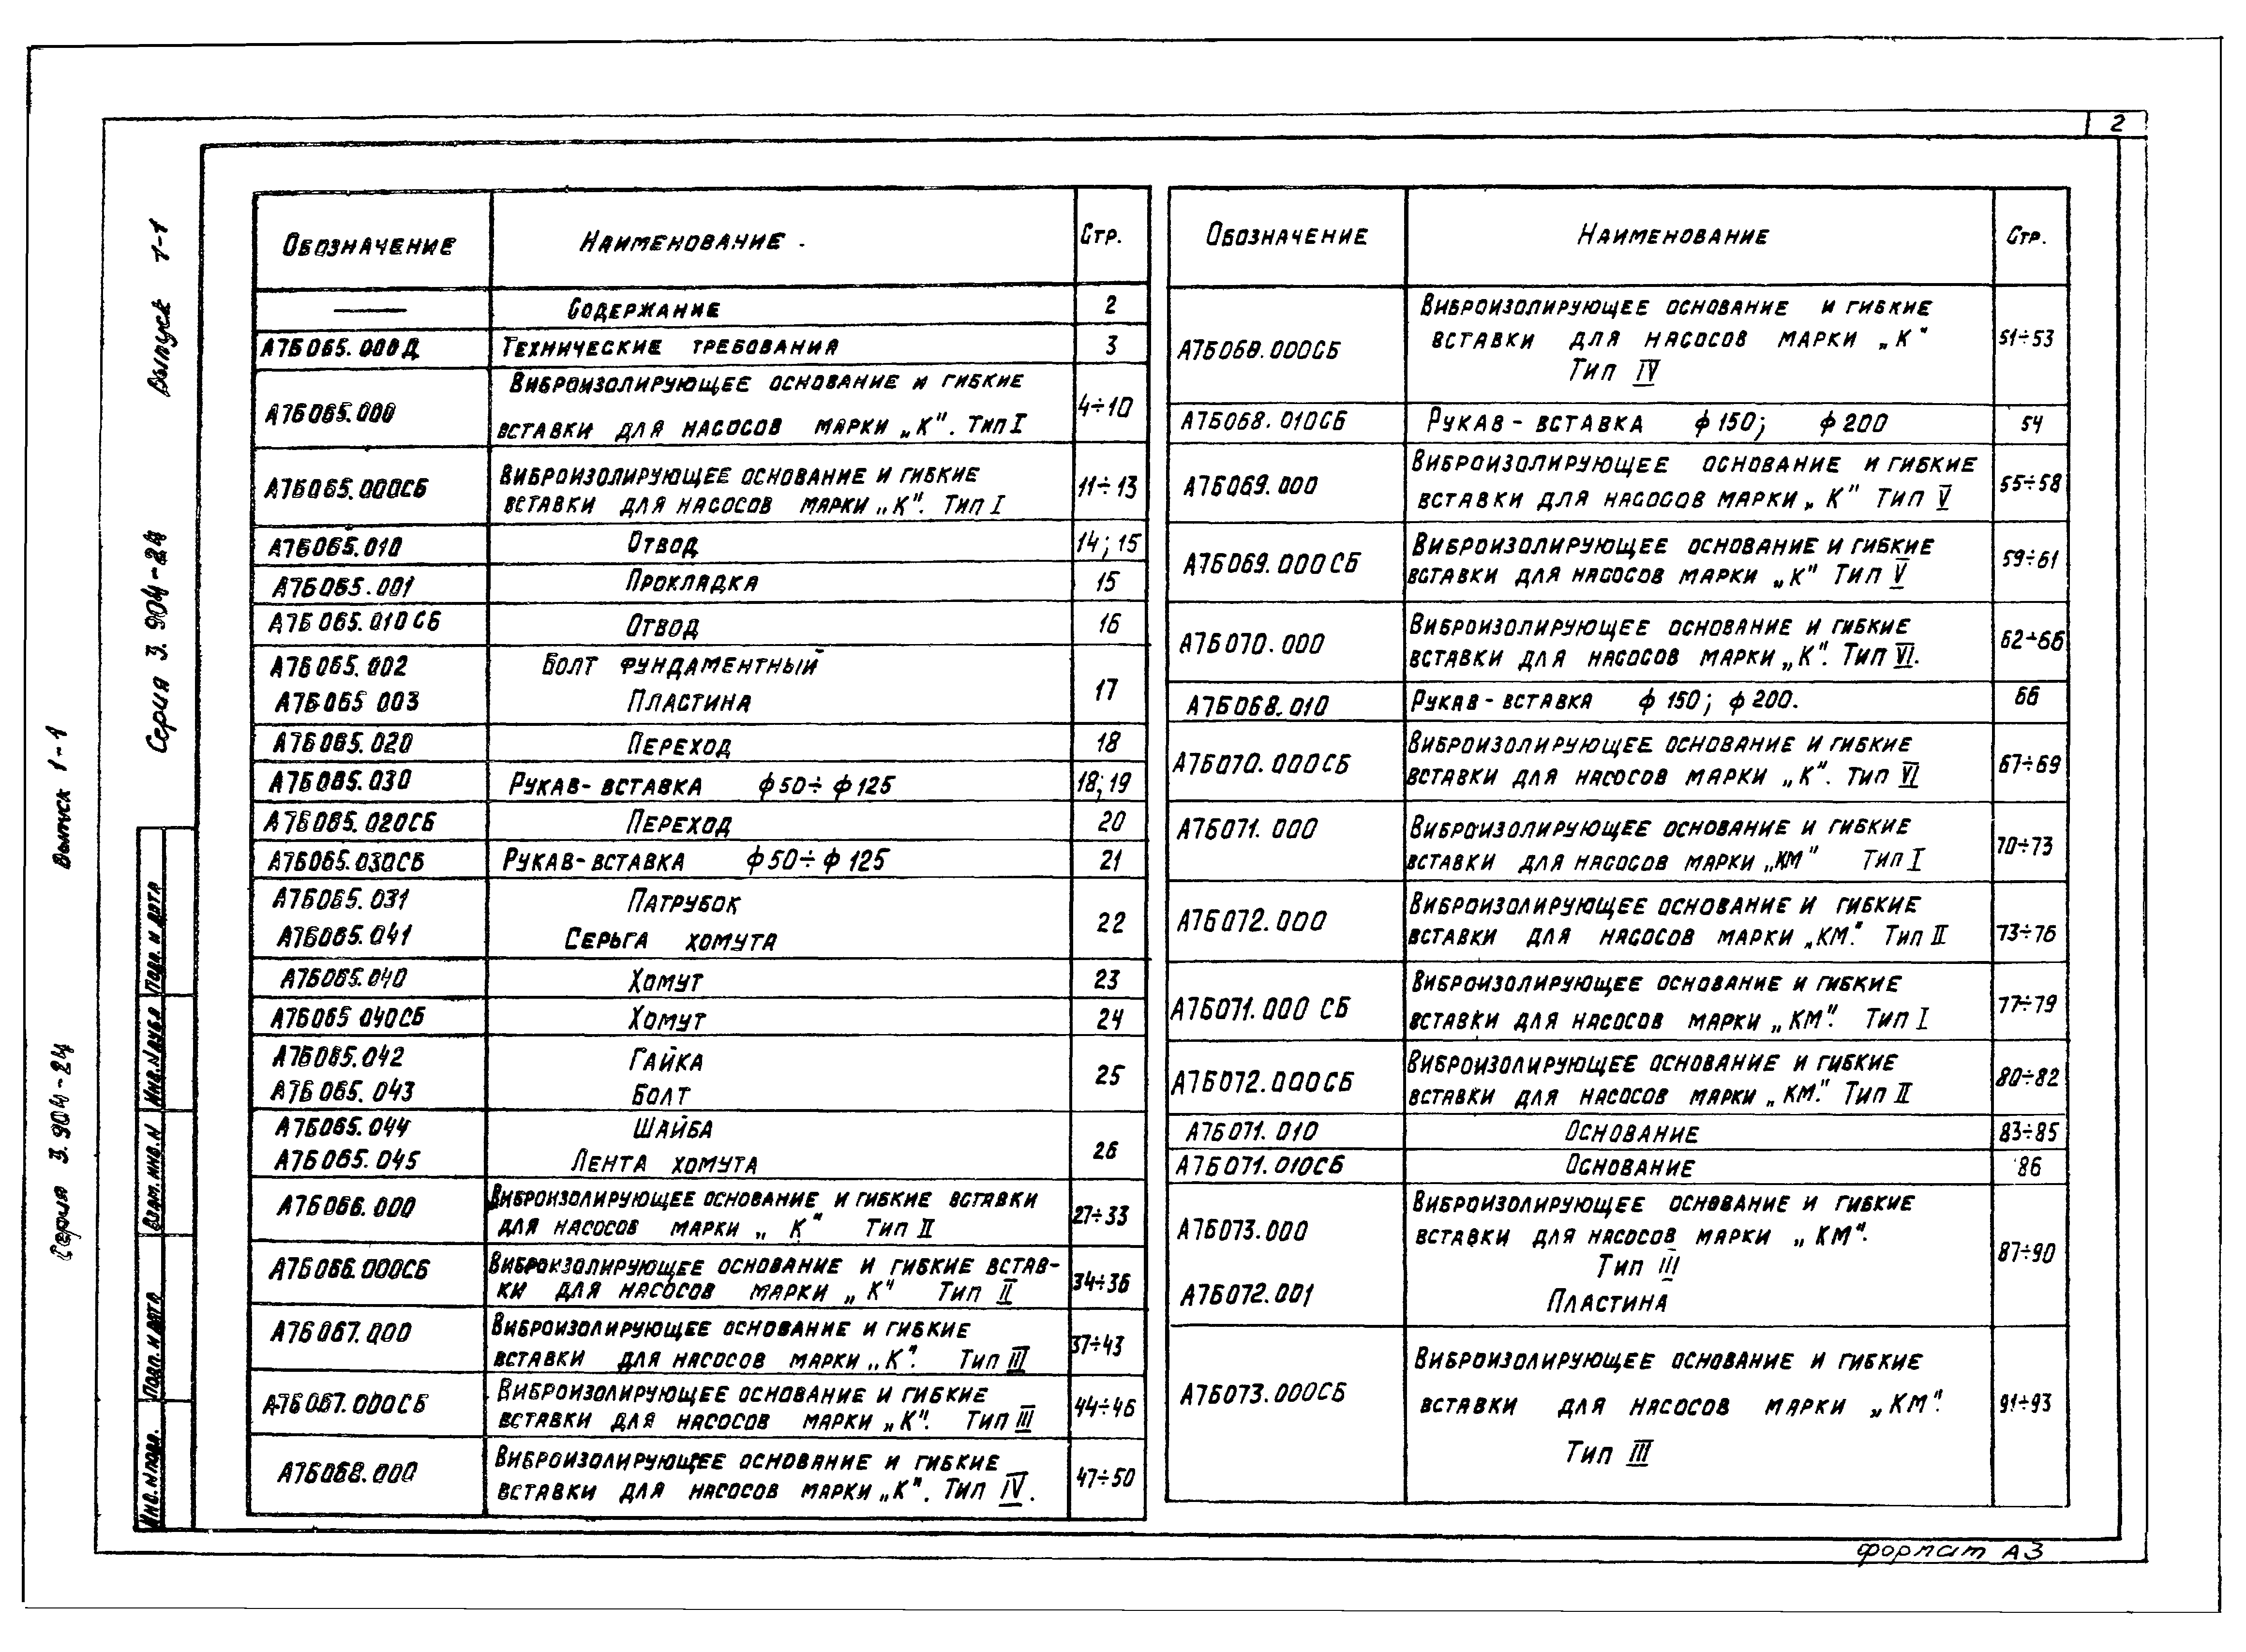 2
Серия 3.904-24 Выпуск 1-1
Серия 3.904-24 Выпуск 1-1
Подп. и дата
Взам. инв. N
Подп. и дата
Инв. N подл.
Обозначение Наименование Стр.
— Содержание 2
А7Б065.000Д Технические требования 3
А7Б065.000 Виброизолирующее основание и гибкие
вставки для насосов марки „К". Тип I 4÷10
А7Б065.000СБ Виброизолирующее основание и гибкие
вставки для насосов марки „К". Тип I 11÷13
А7Б065.010 Отвод 14; 15
А7Б065.001 Прокладка 15
А7Б065.010СБ Отвод 16
А7Б065.002 Болт фундаментный
А7Б065 003 Пластина 17
А7Б065.020 Переход 18
А7Б065.030 Рукав-вставка ф50÷ф125 18; 19
А7Б065.020СБ Переход 20
А7Б065.030СБ Рукав-вставка ф50÷ф125 21
А7Б065.031 Патрубок
А7Б065.041 Серьга хомута 22
А7Б065.040 Хомут 23
А7Б065 040СБ Хомут 24
А7Б065.042 Гайка
А7Б065.043 Болт 25
А7Б065.044 Шайба
А7Б065.045 Лента хомута 26
А7Б066.000 Виброизолирующее основание и гибкие вставки
для насосов марки „К" Тип II 27÷33
А7Б066.000СБ Виброизолирующее основание и гибкие встав-
ки для насосов марки „К" Тип II 34÷36
А7Б067.000 Виброизолирующее основание и гибкие
вставки для насосов марки „К". Тип III 37÷43
А7Б067.000СБ Виброизолирующее основание и гибкие
вставки для насосов марки „К". Тип III 44÷46
А7Б068.000 Виброизолирующее основание и гибкие
вставки для насосов марки „К". Тип IV. 47÷50
Обозначение Наименование Стр.
А7Б068.000СБ Виброизолирующее основание и гибкие
вставки для насосов марки „К"
Тип IV 51÷53
А7Б068.010СБ Рукав-вставка ф150; ф200 54
А7Б069.000 Виброизолирующее основание и гибкие
вставки для насосов марки „К" Тип V 55÷58
А7Б069.000СБ Виброизолирующее основание и гибкие
вставки для насосов марки „К" Тип V 59÷61
А7Б070.000 Виброизолирующее основание и гибкие
вставки для насосов марки „К". Тип VI. 62÷66
А7Б068.010 Рукав-вставка ф150; ф200. 66
А7Б070.000СБ Виброизолирующее основание и гибкие
вставки для насосов марки „К". Тип VI 67÷69
А7Б071.000 Виброизолирующее основание и гибкие
вставки для насосов марки „КМ" Тип I 70÷73
А7Б072.000 Виброизолирующее основание и гибкие
вставки для насосов марки „КМ". Тип II 73÷76
А7Б071.000 СБ Виброизолирующее основание и гибкие
вставки для насосов марки „КМ". Тип I 77÷79
А7Б072.000СБ Виброизолирующее основание и гибкие
вставки для насосов марки „КМ". Тип II 80÷82
А7Б071.010 Основание 83÷85
А7Б071.010СБ Основание 86
А7Б073.000 Виброизолирующее основание и гибкие
вставки для насосов марки „КМ".
Тип III
А7Б072.001 Пластина 87÷90
А7Б073.000СБ Виброизолирующее основание и гибкие
вставки для насосов марки „КМ".
Тип III 91÷93
формат А3